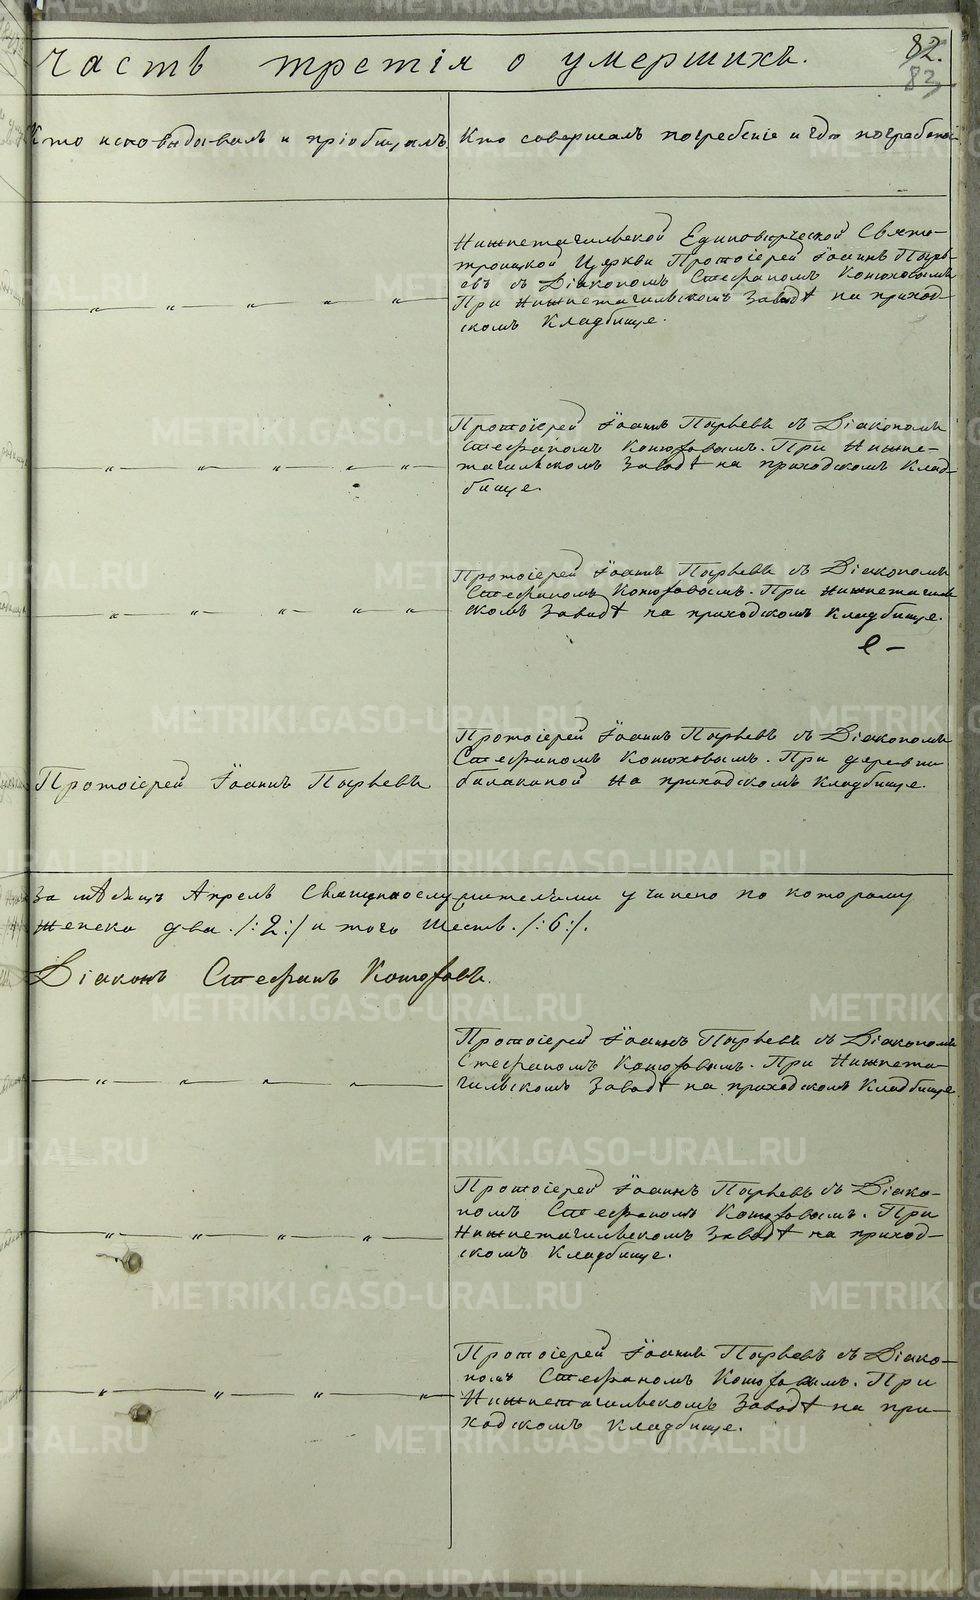 82.
83
Часть третія о умершихъ.
Кто исповѣдывалъ и пріобщалъ
Кто совершалъ погребеніе и гдѣ погребены
Нижнетагильской Единовѣрческой Свято-
троицкой Церкви Протоіерей Іоаннъ Пырь-
евъ съ Діакономъ Стефаномъ Конюховымъ
При Нижнетагильскомъ Заводѣ на приход-
скомъ Кладбище.
Протоіерей Іоаннъ Пырьевъ съ Діакономъ
Стефаномъ Конюховымъ. При Нижне-
тагильскомъ Заводѣ на приходскомъ Клад-
бище.
Протоіерей Іоаннъ Пырьевъ съ Діакономъ
Стефаномъ Конюховымъ. При Нижнетагиль
скомъ Заводѣ на приходскомъ Кладбище.
Протоіерей Іоаннъ Пырьевъ
Протоіерей Іоаннъ Пырьевъ съ Діакономъ
Стефаномъ Конюховымъ. При деревни
балакиной На приходскомъ Кладбище.
За мѣсяцъ Апрель Священнослужителями учинено по которому
Женска два /:2:/ и того Шесть /:6:/.
Діаконъ Стефанъ Конюховъ.
Протоіерей Іоаннъ Пырьевъ съ Діакономъ
Стефаномъ Конюховымъ. При Нижнета-
гильскомъ Заводѣ на приходскомъ Кладбище
Протоіерей Іоаннъ Пырьевъ съ Діако-
номъ Стефаномъ Конюховымъ. При
Нижнетагильскомъ Заводѣ на приход-
скомъ Кладбище.
Протоіерей Іоаннъ Пырьевъ съ Діако-
номъ Стефаномъ Конюховымъ. При
Нижнетагильскомъ Заводѣ на при-
ходскомъ Кладбище.
METRIKI.GASO-URAL.RU